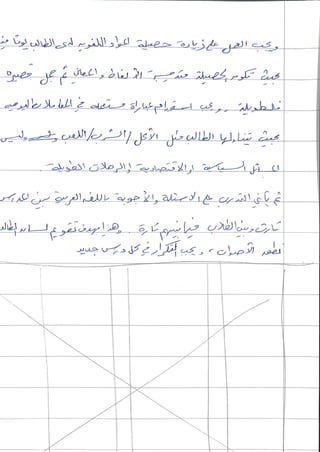 ويجب العمل على زيادة حصيلة المواد اللغوية لدى الطالب يوما
بحيث تكون الحصيلة متدرجة الألفاظ والمعاني ثم جمل قصيرة
فطويلة . ويجب استخدام عبارات مستعملة في المعاملات اليومية
بحيث يتناولها الطالب مثل الأكل / الشرب / اللعب وليس
المسائل السياسية أو الاقتصادية والرحلات الطويلة .
ثم يأتي التدرب على الأسئلة والأجوبة باللغة العربية بين المدرس
تارة وبين الطلاب فيما بينهم تارة . وهذا بهدف تقويم لسان الطالب
لطور الأصوات ، ويجب التكرار في كل درس جديد